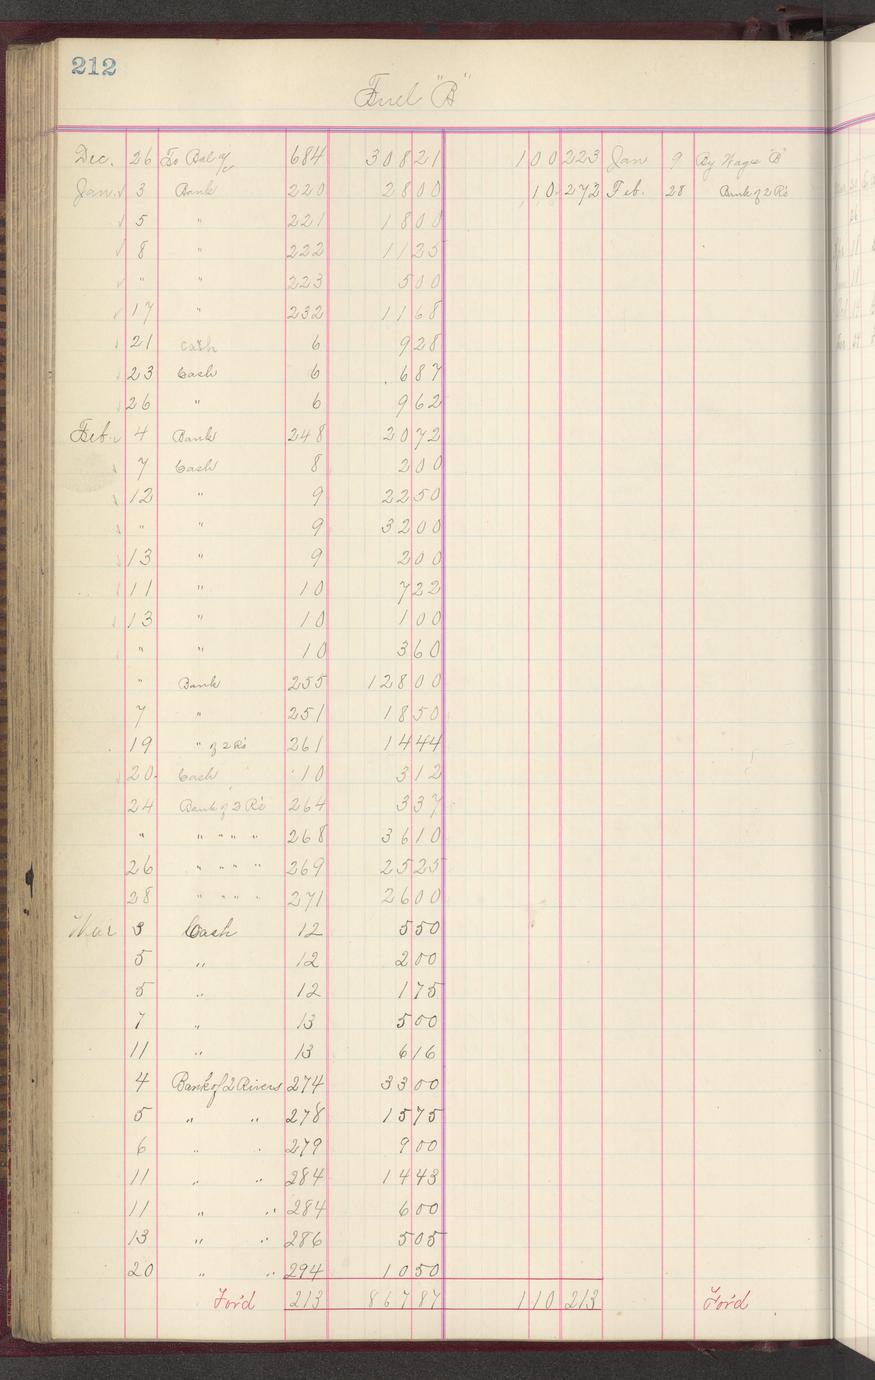 212
Fuel "B"
Dec. 26 To Bal % 684 308 21 1 00 223 Jan 9 By Wages "B"
Jan. 3 Bank 220 28 00 10 272 Feb. 28 Bank of 2 R's
5 " 221 18 00
8 " 222 11 25
" " 223 5 00
17 " 232 11 68
21 Cash 6 9 28
23 Cash 6 6 87
26 " 6 9 62
Feb. 4 Bank 248 20 72
7 Cash 8 2 00
12 " 9 22 50
" " 9 32 00
13 " 9 2 00
11 " 10 7 22
13 " 10 1 00
" " 10 3 60
" Bank 255 128 00
7 " 251 18 50
19 " of 2 R's 261 14 44
20 Cash 10 3 12
24 Bank of 2 R's 264 3 37
" " " " " 268 36 10
26 " " " " 269 25 25
28 " " " " 271 26 00
Mar 3 Cash 12 5 50
5 " 12 2 00
5 " 12 1 75
7 " 13 5 00
11 " 13 6 16
4 Bank of 2 Rivers 274 33 00
5 " " 278 15 75
6 " " 279 9 00
11 " " 284 14 43
11 " " 284 6 00
13 " " 286 5 05
20 " " 294 10 50
For'd 213 867 87 1 10 213 For'd